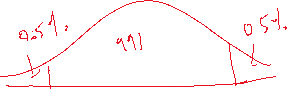 0.5%.
99%
0.5%.